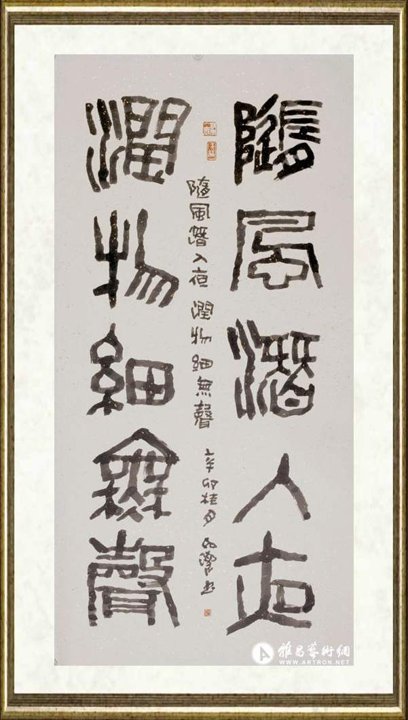 隨風潛入夜
隨風潛入夜 潤物細無聲
辛卯桂月
潤物細無聲
雅昌藝術網
WWW.ARTRON.NET